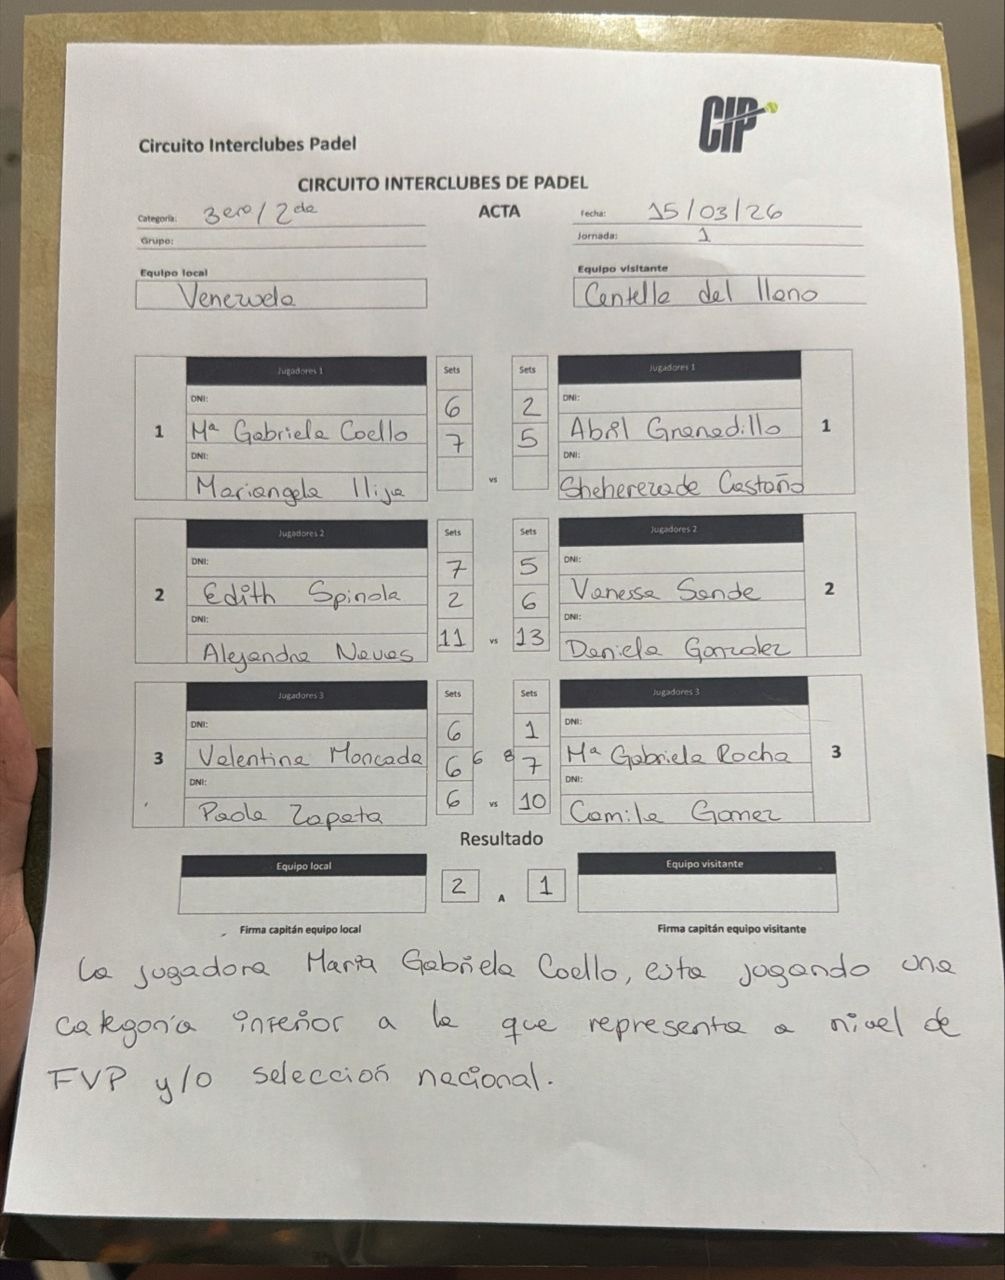 CIP
Circuito Interclubes Padel
CIRCUITO INTERCLUBES DE PADEL
Categoría: 3ero / 2da
ACTA
Fecha: 15/03/26
Grupo:
Jornada: 1
Equipo local
Equipo visitante
Venezuela
Centella del llano
Jugadores 1 Sets Sets Jugadores 1
DNI: 6 2 DNI:
1 Mª Gabriela Coello 7 5 Abril Granadillo 1
DNI: vs DNI:
Mariangela Ilija Sheherezade Castaño
Jugadores 2 Sets Sets Jugadores 2
DNI: 7 5 DNI:
2 Edith Spinola 2 6 Vanessa Sande 2
DNI: 11 vs 13 DNI:
Alejandra Neves Daniela Gonzalez
Jugadores 3 Sets Sets Jugadores 3
DNI: 6 1 DNI:
3 Valentina Moncada 6 6 8 7 Mª Gabriela Rocha 3
DNI: 6 vs 10 DNI:
Paola Zapata Camila Gomez
Resultado
Equipo local 2 A 1 Equipo visitante
Firma capitán equipo local
Firma capitán equipo visitante
La jugadora María Gabriela Coello, esta jugando una
categoría inferior a la que representa a nivel de
FVP y/o selección nacional.